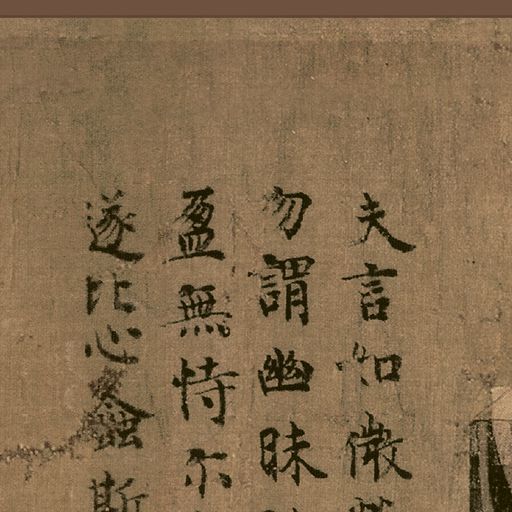 夫言如微
勿謂幽昧
盈無恃尒
遂比心螽斯